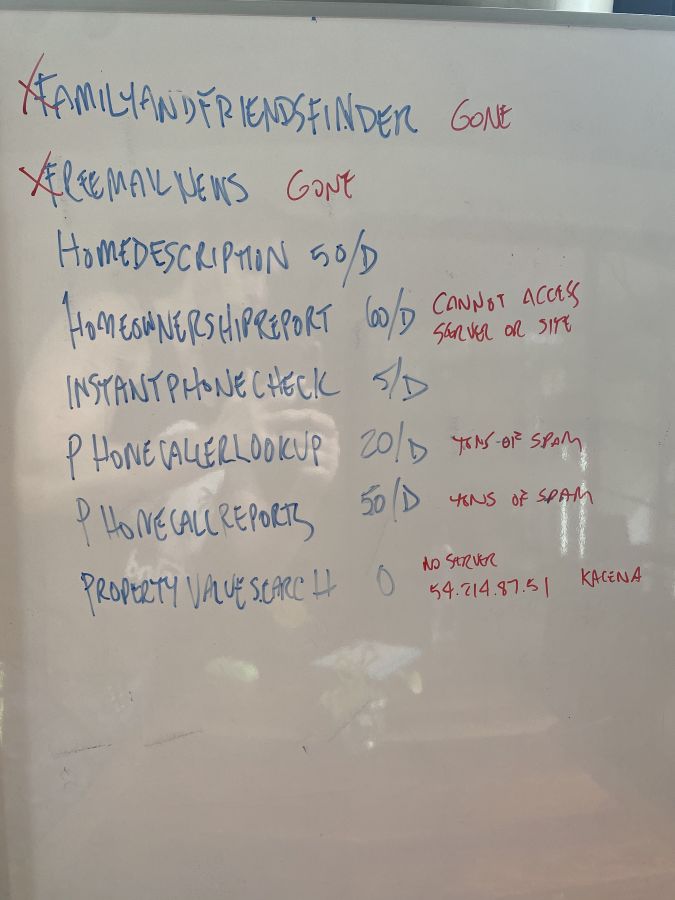 X FAMILYANDFRIENDSFINDER GONE
X FREEMAILNEWS GONE
HOMEDESCRIPTION 50/D
HOMEOWNERSHIPREPORT 60/D CANNOT ACCESS
SERVER OR SITE
INSTANTPHONECHECK 5/D
PHONECALLERLOOKUP 20/D TONS OF SPAM
PHONECALLREPORTS 50/D TONS OF SPAM
PROPERTYVALUESEARCH 0 NO SERVER
54.214.87.51 KACENA